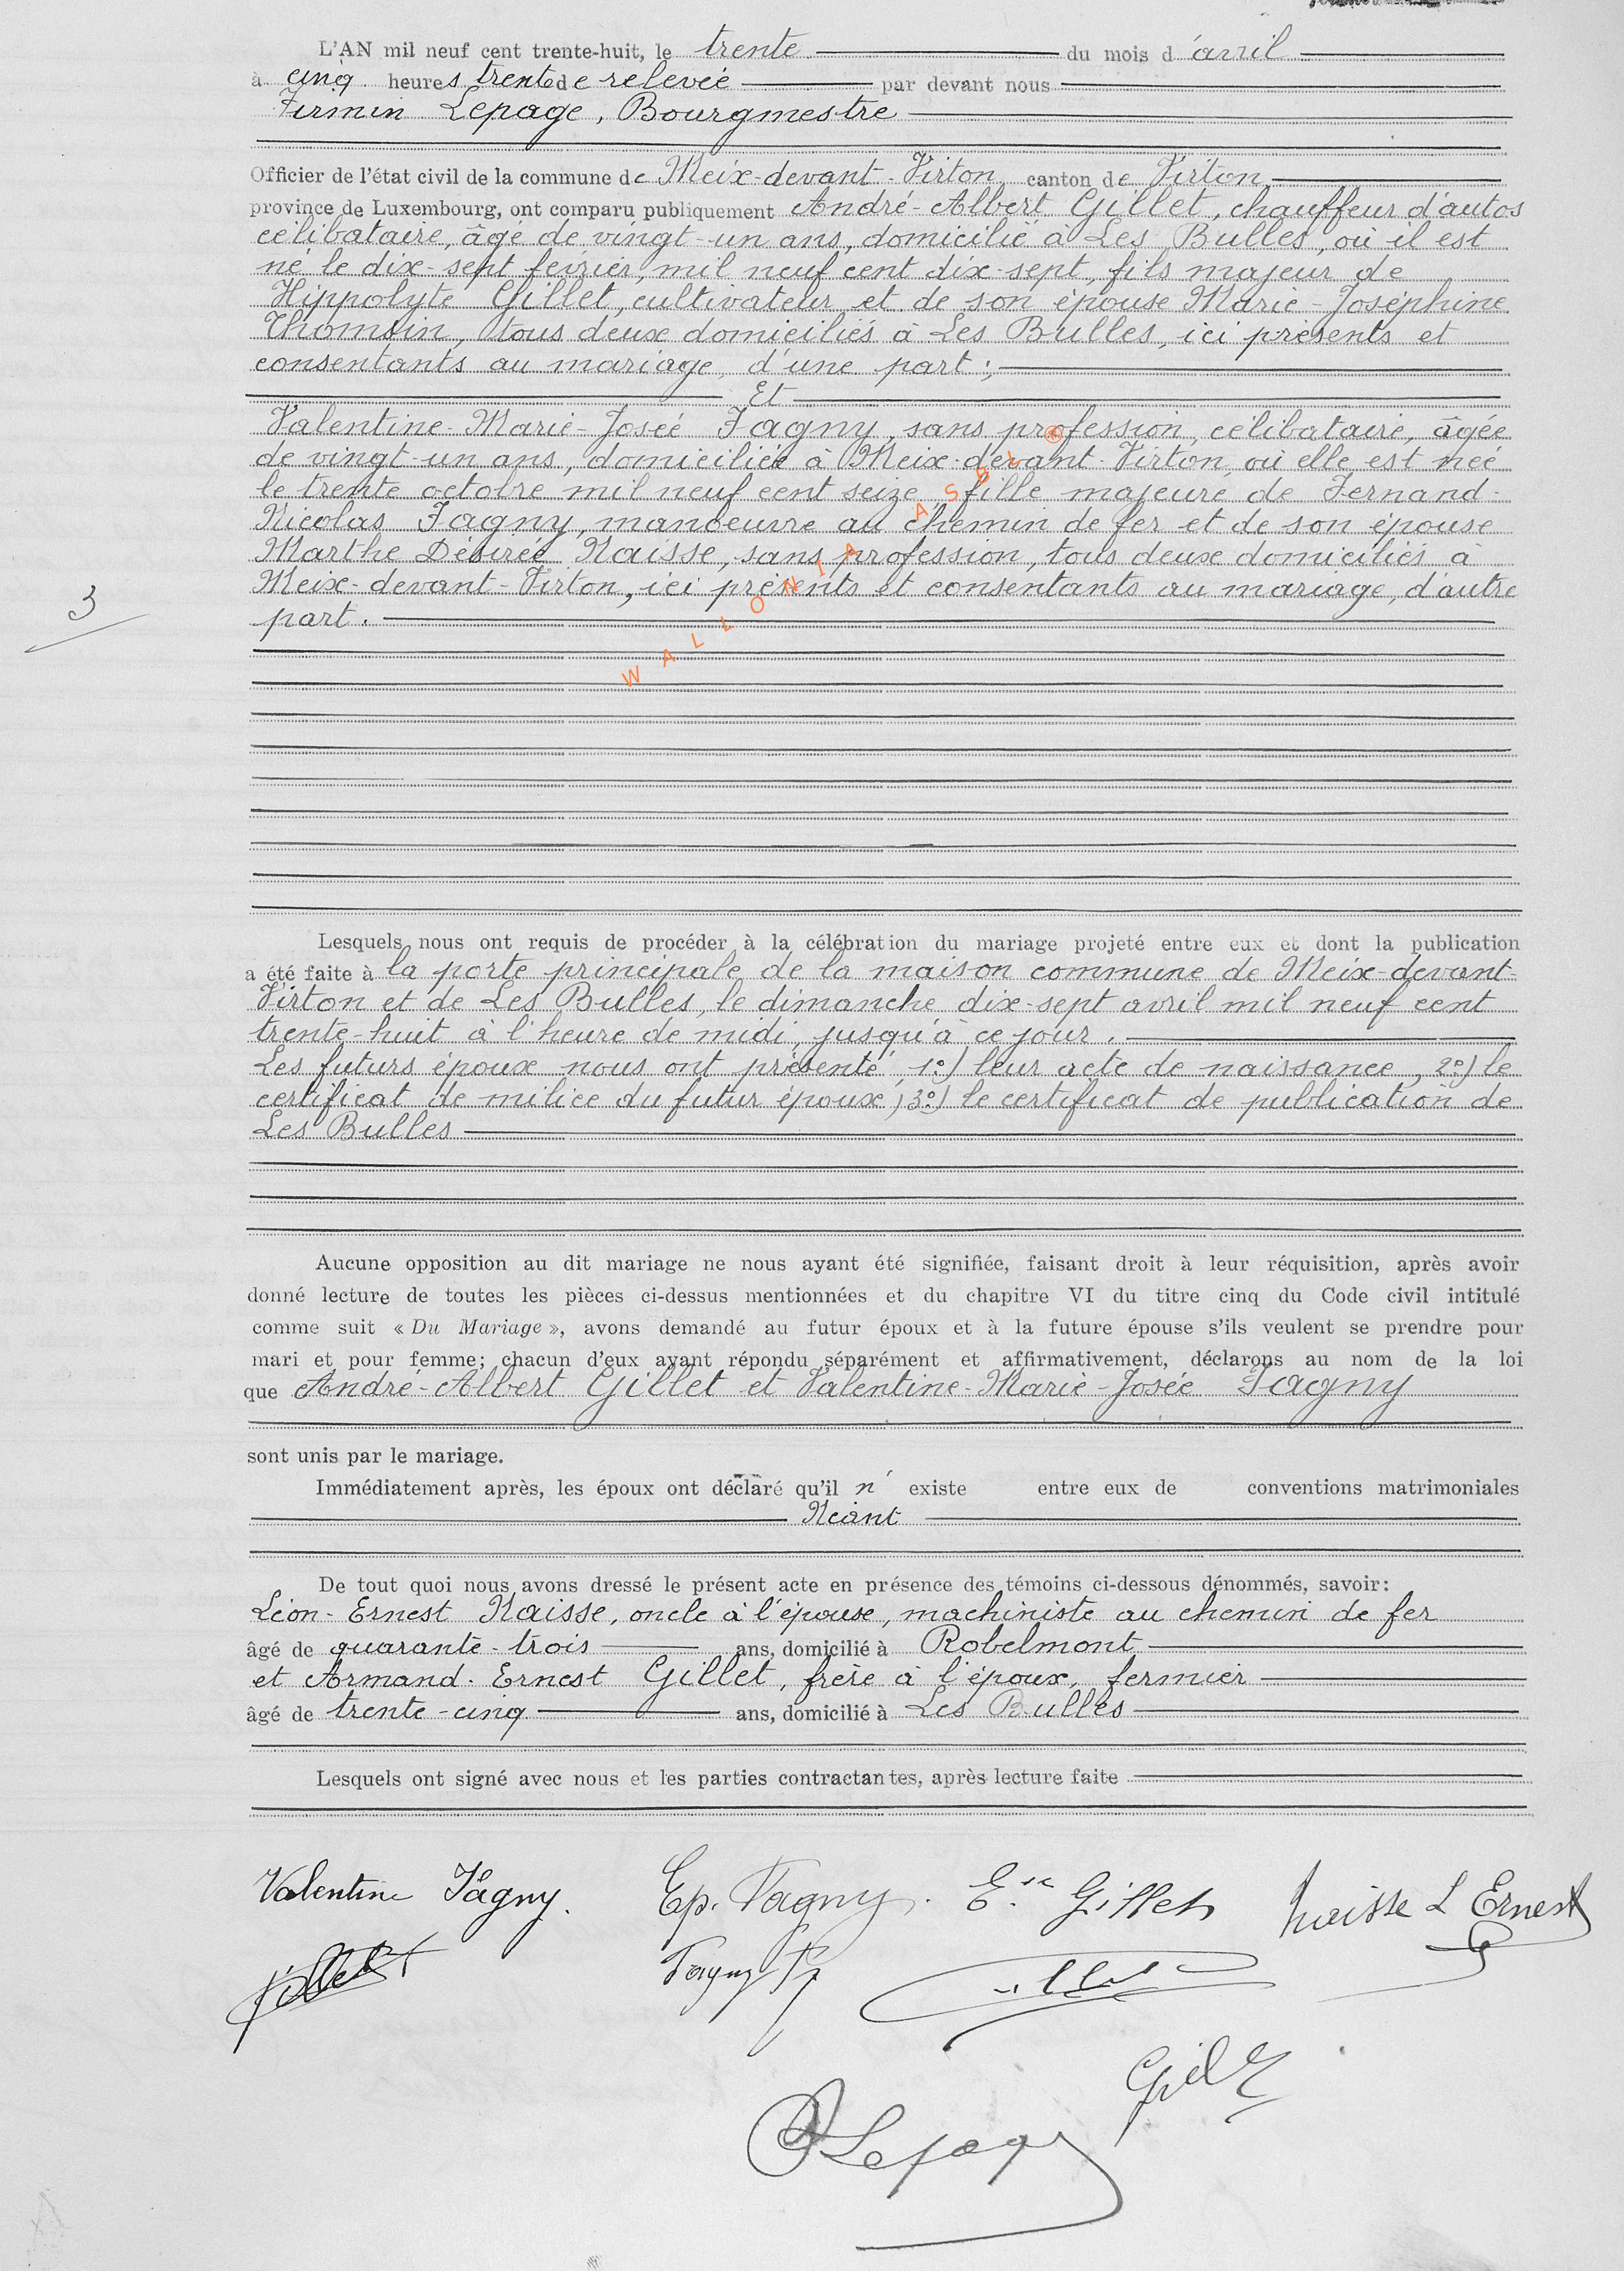 L'AN mil neuf cent trente-huit, le trente du mois d'avril
à cinq heures trente de relevée par devant nous
Firmin Lepage, Bourgmestre
Officier de l'état civil de la commune de Meix-devant-Virton canton de Virton
province de Luxembourg, ont comparu publiquement André-Albert Gillet, chauffeur d'autos
célibataire, âgé de vingt-un ans, domicilié à Les Bulles, où il est
né le dix-sept février, mil neuf cent dix-sept, fils majeur de
Hippolyte Gillet, cultivateur et de son épouse Marie-Joséphine
Thomsin, tous deux domiciliés à Les Bulles, ici présents et
consentants au mariage, d'une part;
Et
Valentine-Marie-Josée Fagny, sans profession, célibataire, âgée
de vingt-un ans, domiciliée à Meix-devant-Virton, où elle est née
le trente octobre mil neuf cent seize, fille majeure de Fernand-
Nicolas Fagny, manoeuvre au chemin de fer et de son épouse
Marthe Désirée Naisse, sans profession, tous deux domiciliés à
Meix-devant-Virton, ici présents et consentants au mariage, d'autre
part.
3
WALLONIA ASBL ®
Lesquels nous ont requis de procéder à la célébration du mariage projeté entre eux et dont la publication
a été faite à la porte principale de la maison commune de Meix-devant-
Virton et de Les Bulles, le dimanche dix-sept avril mil neuf cent
trente-huit à l'heure de midi, jusqu'à ce jour.
Les futurs époux nous ont présenté, 1º) leur acte de naissance, 2º) le
certificat de milice du futur époux, 3º) le certificat de publication de
Les Bulles
Aucune opposition au dit mariage ne nous ayant été signifiée, faisant droit à leur réquisition, après avoir
donné lecture de toutes les pièces ci-dessus mentionnées et du chapitre VI du titre cinq du Code civil intitulé
comme suit « Du Mariage », avons demandé au futur époux et à la future épouse s'ils veulent se prendre pour
mari et pour femme; chacun d'eux ayant répondu séparément et affirmativement, déclarons au nom de la loi
que André-Albert Gillet et Valentine-Marie-Josée Fagny
sont unis par le mariage.
Immédiatement après, les époux ont déclaré qu'il n' existe entre eux de conventions matrimoniales
Néant
De tout quoi nous avons dressé le présent acte en présence des témoins ci-dessous dénommés, savoir:
Léon-Ernest Naisse, oncle à l'épouse, machiniste au chemin de fer
âgé de quarante-trois ans, domicilié à Robelmont
et Armand-Ernest Gillet, frère à l'époux, fermier
âgé de trente-cinq ans, domicilié à Les Bulles
Lesquels ont signé avec nous et les parties contractantes, après lecture faite
Valentine Fagny. Ep. Fagny. Ese Gillet Naisse L Ernest
Gillet Fagny F
Lepage